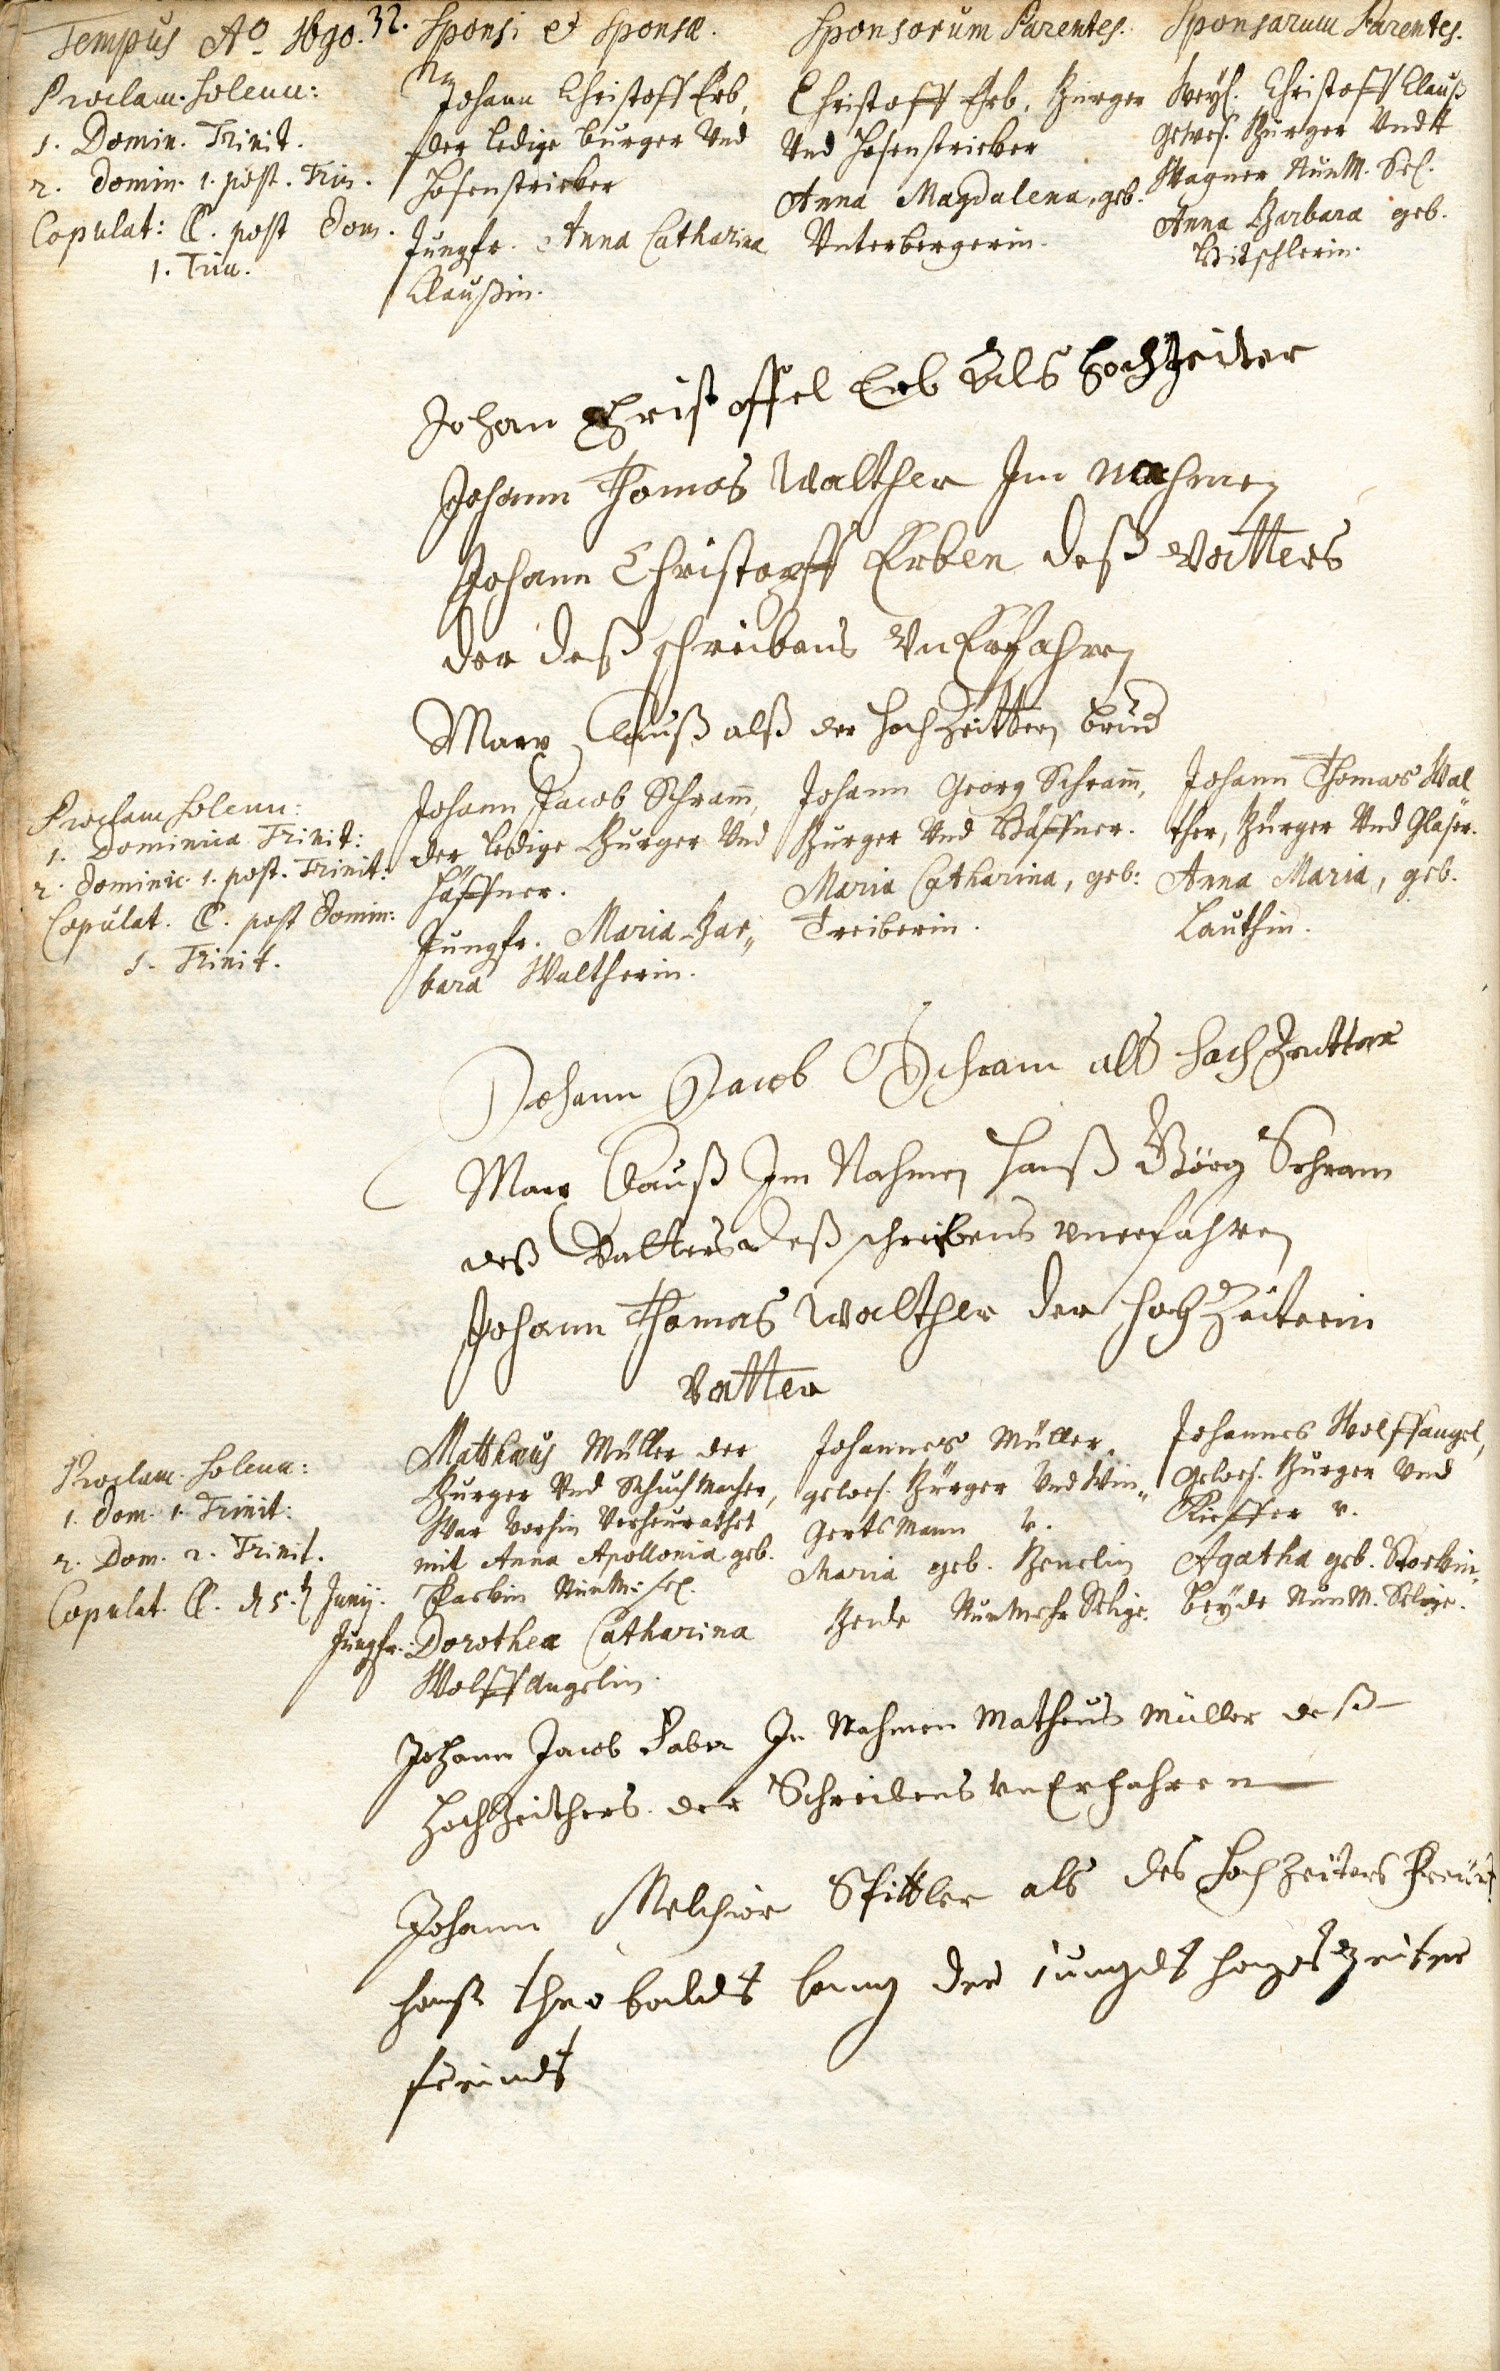 Tempus Aō 1690. 32. Sponsi et Sponsæ. Sponsorum Parentes. Sponsarum Parentes.
Proclam: solenn:
1. Domin. Trinit.
2. Domin. 1. post. Trin.
Copulat: C. post Dom.
1. Trin.
Johann Christoff Erb,
der ledige burger Vnd
Hosenstricker
Jungfr. Anna Catharina
Claußin.
Christoff Erb, Burger
Vnd Hosenstricker
Anna Magdalena, geb.
Vnterbergerin.
Weyl. Christoff Clauß
gewes. Burger Vndt
Wagner NunM. Sel.
Anna Barbara geb.
Bitschlerin.
Johan Christoffel Erb Als HochZeiter
Johann Thomas Walther Im nahmen
Johann Christopff Erben deß Vatters
der deß schreibens VnErfahren
Marx Clauß alß der HochZeitterin brud
Proclam solenn:
1. Dominica Trinit:
2. Dominic. 1. post. Trinit:
Copulat. C. post Domin:
1. Trinit.
Johann Jacob Schram̄,
der ledige Burger Vnd
Häffner.
Jungfr. Maria Bar„
bara Waltherin.
Johann Georg Schram̄,
Burger Vnd Häffner.
Maria Catharina, geb:
Treiberin.
Johann Thomas Wal
ther, Burger Vnd Glaser.
Anna Maria, geb.
Lauthin.
Johann Jacob Schram als HochZeitter
Marx Clauß Im Nahmen Hanß Görg Schram
deß Vatters deß schreibens vnerfahren
Johann Thomas Walther der HochZeiterin
Vatter
Proclam. solenn:
1. Dom. 1. Trinit:
2. Dom. 2. Trinit.
Copulat. C. d. 5. Junij.
Matthaus Müller der
Burger Vnd Schuchmacher,
War vorhin Verheurathet
mit Anna Apollonia geb.
NunM: sel.
Jungfr. Dorothea Catharina
Wolffangelin.
Johannes Müller,
gewes. Burger Vnd Win„
gertsmann v.
Maria geb.
Beide Nunmehr Selige.
Johannes Wolffangel,
gewes. Burger Vnd
Kieffer v.
Agatha geb.
Beyde NunM. Selige.
Johann Jacob Faber In Nahmen Matheus Müller deß
HochZeithers der Schreibens VnErfahren
Johann Melchior Spittler als des HochZeiters Freünd
Hanß Theobaldt der
freindt